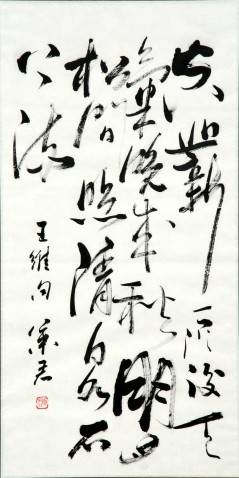 空山新雨後天
氣晚来秋明月
松間照清泉石
上流
王維句